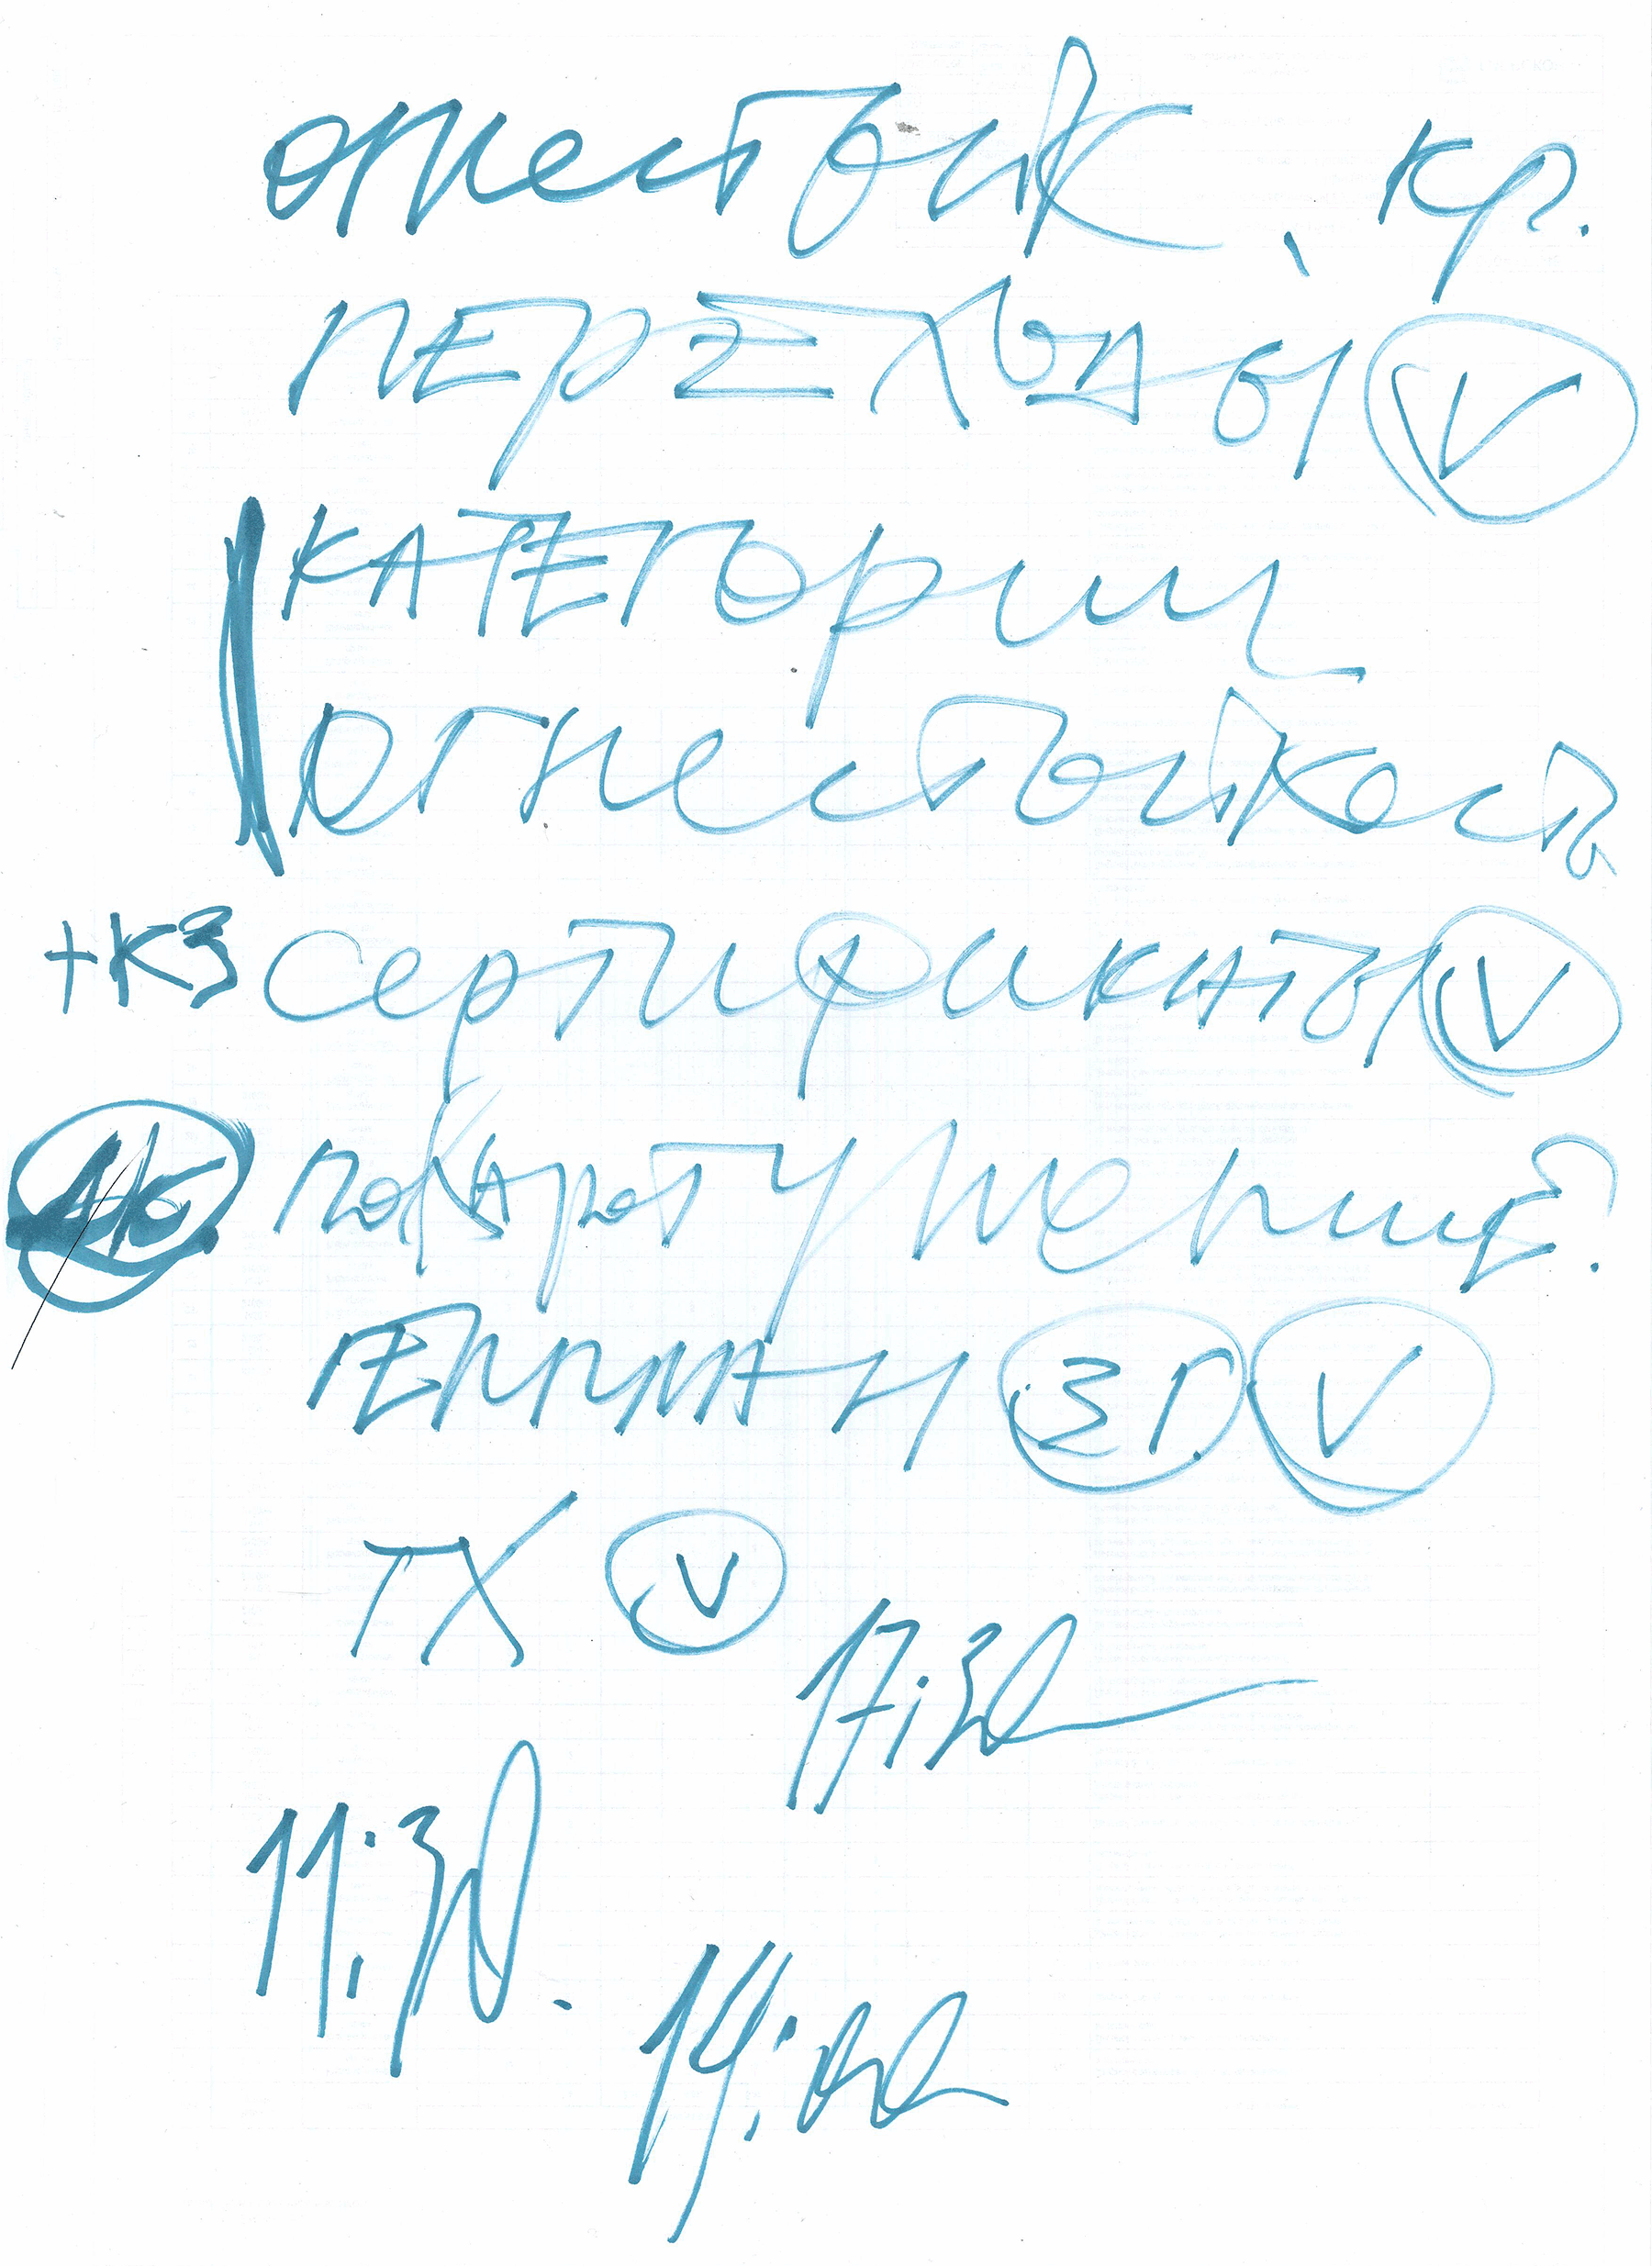 огнестойк. кр.
ПЕРЕХОДЫ V
КАТЕГОРИИ
огнестойкость
+КЗ сертификаты V
ПОЖАРОТУШЕНИЕ?
ГЕРМАН 3Г. V
ТХ V
17:30
11:30.
14:00